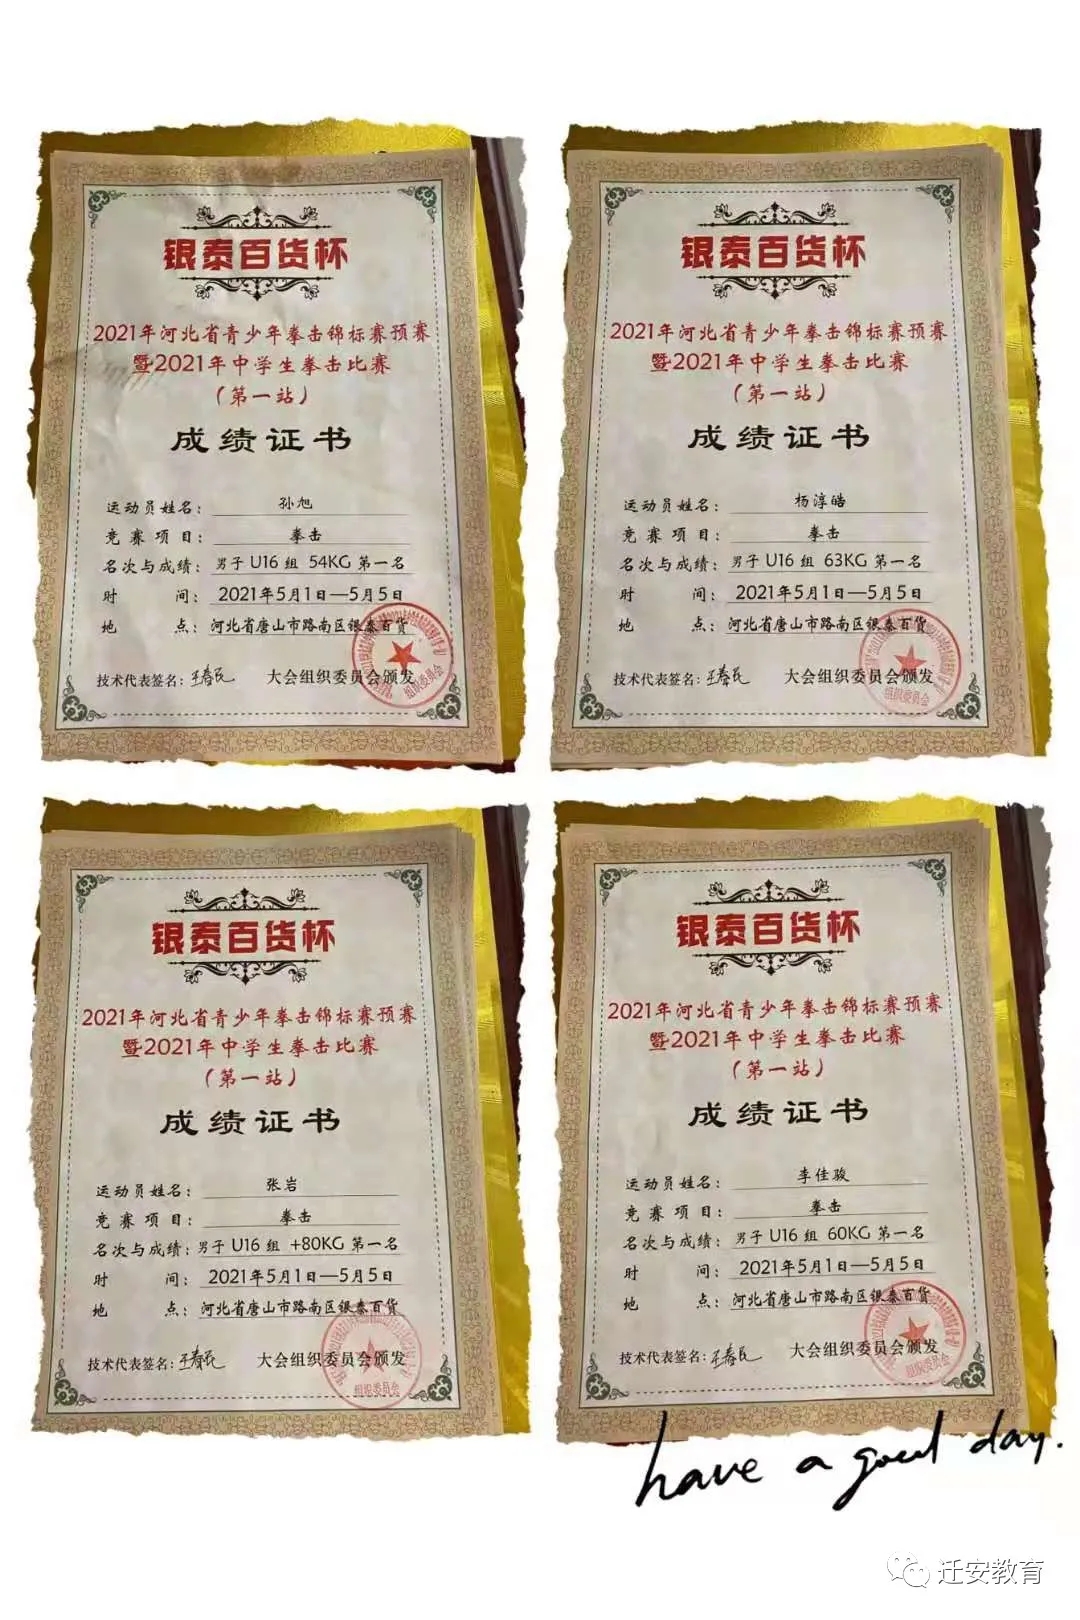 银泰百货杯
2021年河北省青少年拳击锦标赛预赛
暨2021年中学生拳击比赛
（第一站）
成绩证书
运动员姓名： 孙旭
竞赛项目： 拳击
名次与成绩： 男子 U16 组 54KG 第一名
时 间： 2021年5月1日—5月5日
地 点： 河北省唐山市路南区银泰百货
技术代表签名：王春民 大会组织委员会颁发
组织委员会
银泰百货杯
2021年河北省青少年拳击锦标赛预赛
暨2021年中学生拳击比赛
（第一站）
成绩证书
运动员姓名： 杨淳皓
竞赛项目： 拳击
名次与成绩： 男子 U16 组 63KG 第一名
时 间： 2021年5月1日—5月5日
地 点： 河北省唐山市路南区银泰百货
技术代表签名：王春民 大会组织委员会颁发
组织委员会
银泰百货杯
2021年河北省青少年拳击锦标赛预赛
暨2021年中学生拳击比赛
（第一站）
成绩证书
运动员姓名： 张岩
竞赛项目： 拳击
名次与成绩： 男子 U16 组 +80KG 第一名
时 间： 2021年5月1日—5月5日
地 点： 河北省唐山市路南区银泰百货
技术代表签名：王春民 大会组织委员会颁发
组织委员会
银泰百货杯
2021年河北省青少年拳击锦标赛预赛
暨2021年中学生拳击比赛
（第一站）
成绩证书
运动员姓名： 李佳骏
竞赛项目： 拳击
名次与成绩： 男子 U16 组 60KG 第一名
时 间： 2021年5月1日—5月5日
地 点： 河北省唐山市路南区银泰百货
技术代表签名：王春民 大会组织委员会颁发
组织委员会
have a good day.
迁安教育